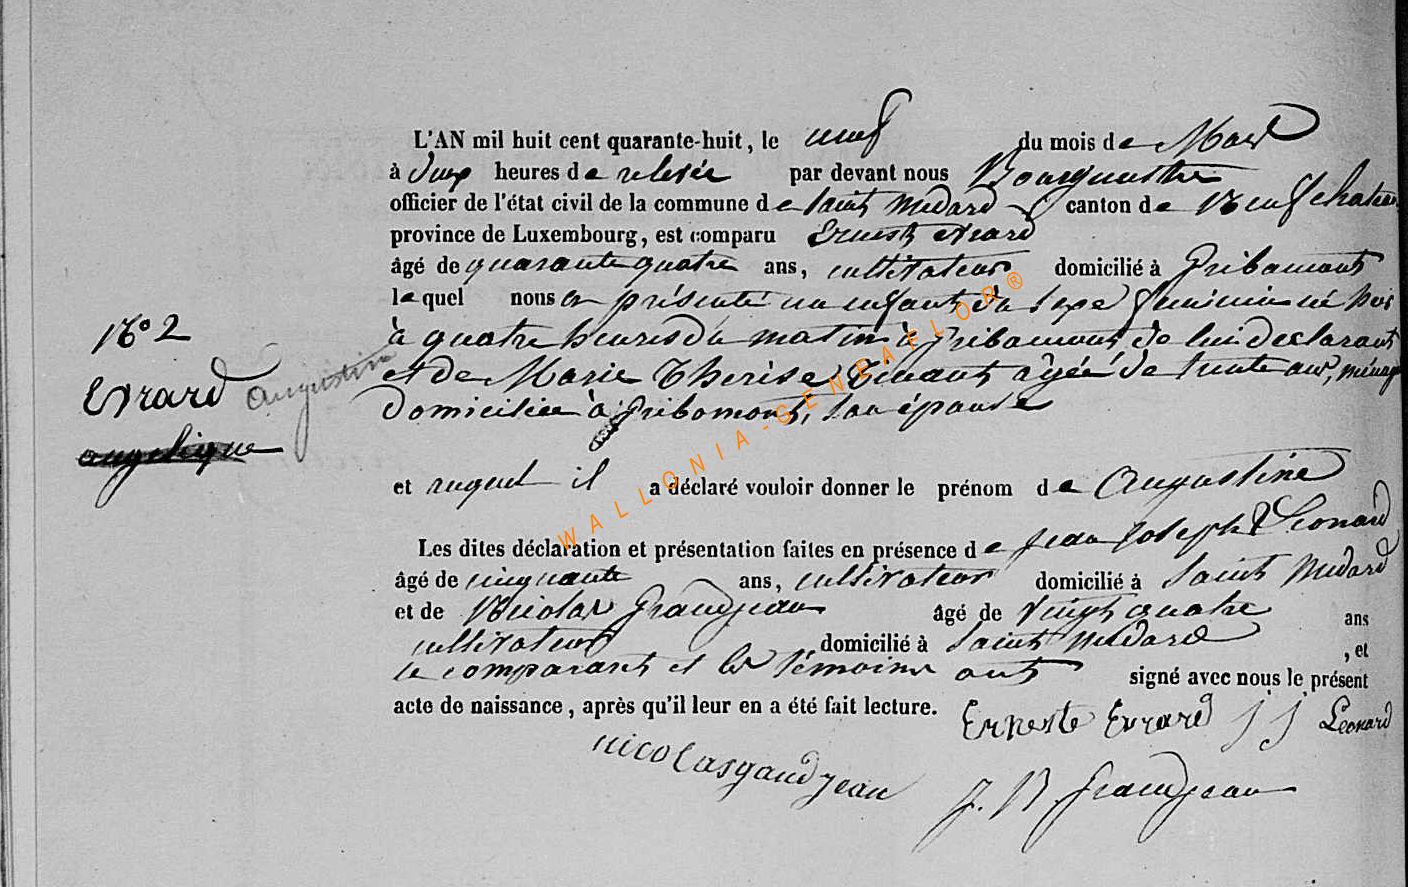 L'AN mil huit cent quarante-huit, le neuf du mois de Mars
à deux heures de relevée par devant nous Bourguestre
officier de l'état civil de la commune de Saint Médard canton de Neufchateau
province de Luxembourg, est comparu Ernest Evrard
âgé de quarante quatre ans, cultivateur domicilié à Gribaumont
lequel nous a présenté un enfant du sexe féminin né hier
à quatre heures du matin à Gribaumont de lui déclarant
et de Marie Thérèse Tinant agée de trente ans, ménag
domiciliée à Gribomont, son épouse
N° 2
Evrard Augustine
angelique
et auquel il a déclaré vouloir donner le prénom de Augustine
Les dites déclaration et présentation faites en présence de Jean Joseph Léonard
âgé de cinquante ans, cultivateur domicilié à Saint Médard
et de Nicolas Grandjean âgé de vingt quatre ans
cultivateur domicilié à Saint Médard , et
le comparant et les témoins ont signé avec nous le présent
acte de naissance, après qu'il leur en a été fait lecture.
Erneste Evrard J J Leonard
nicolasgandjean
J. N. Grandjean
WALLONIA-GENEAFLOR®